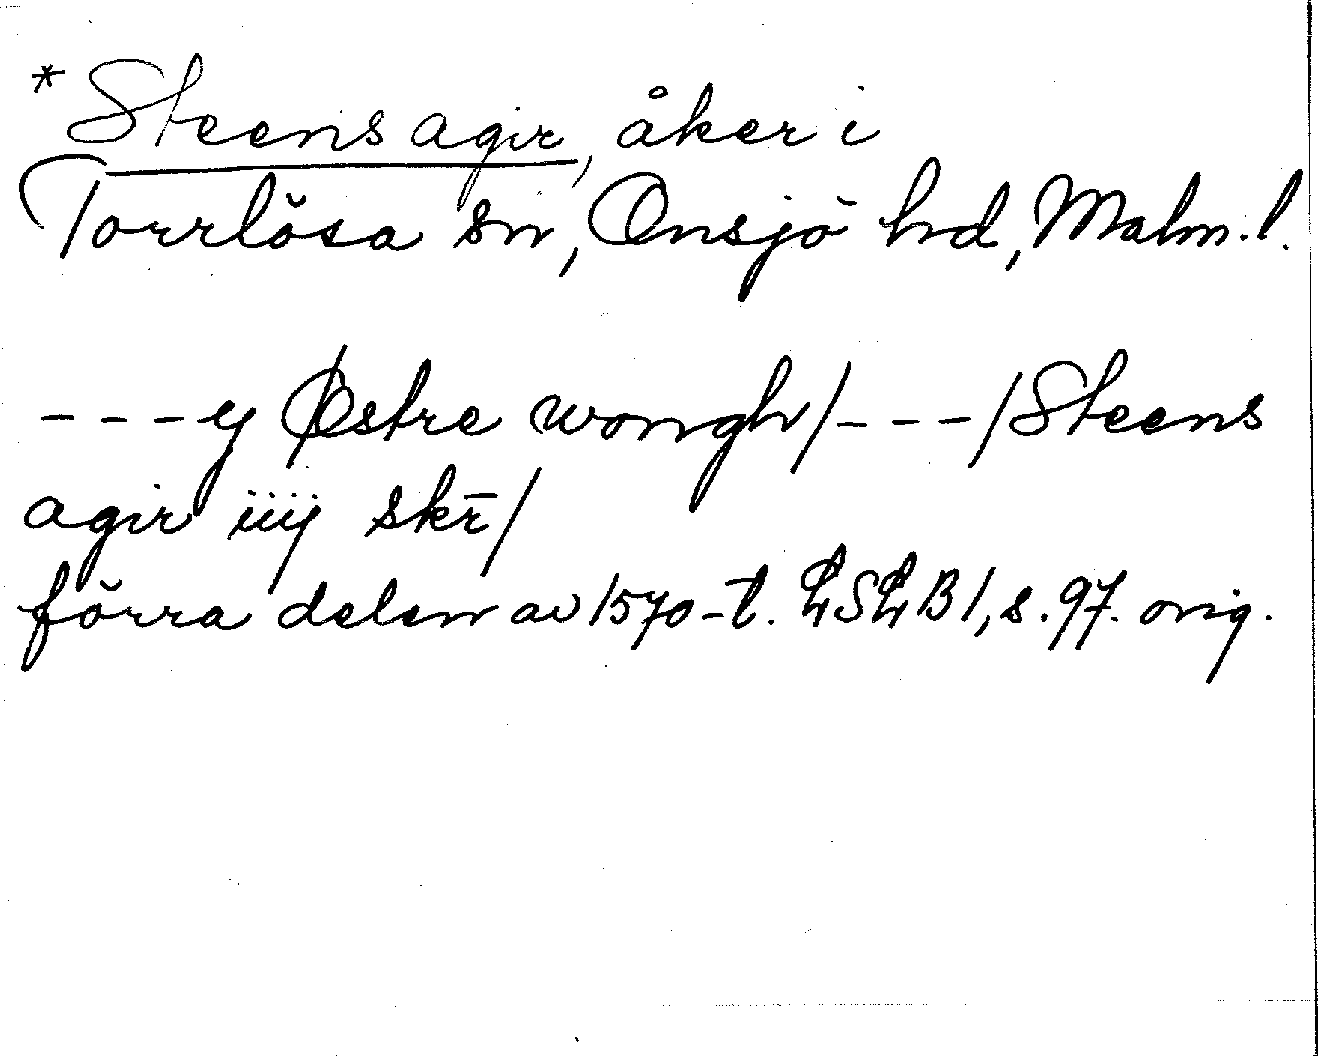 *Steens agir, åker i
Torrlösa sn, Onsjö hd, Malm. l.
---y Østre wongh/---/Steens
agir iiij skr̄/
förra delen av 1570-t. LSLB1, s. 97. orig.